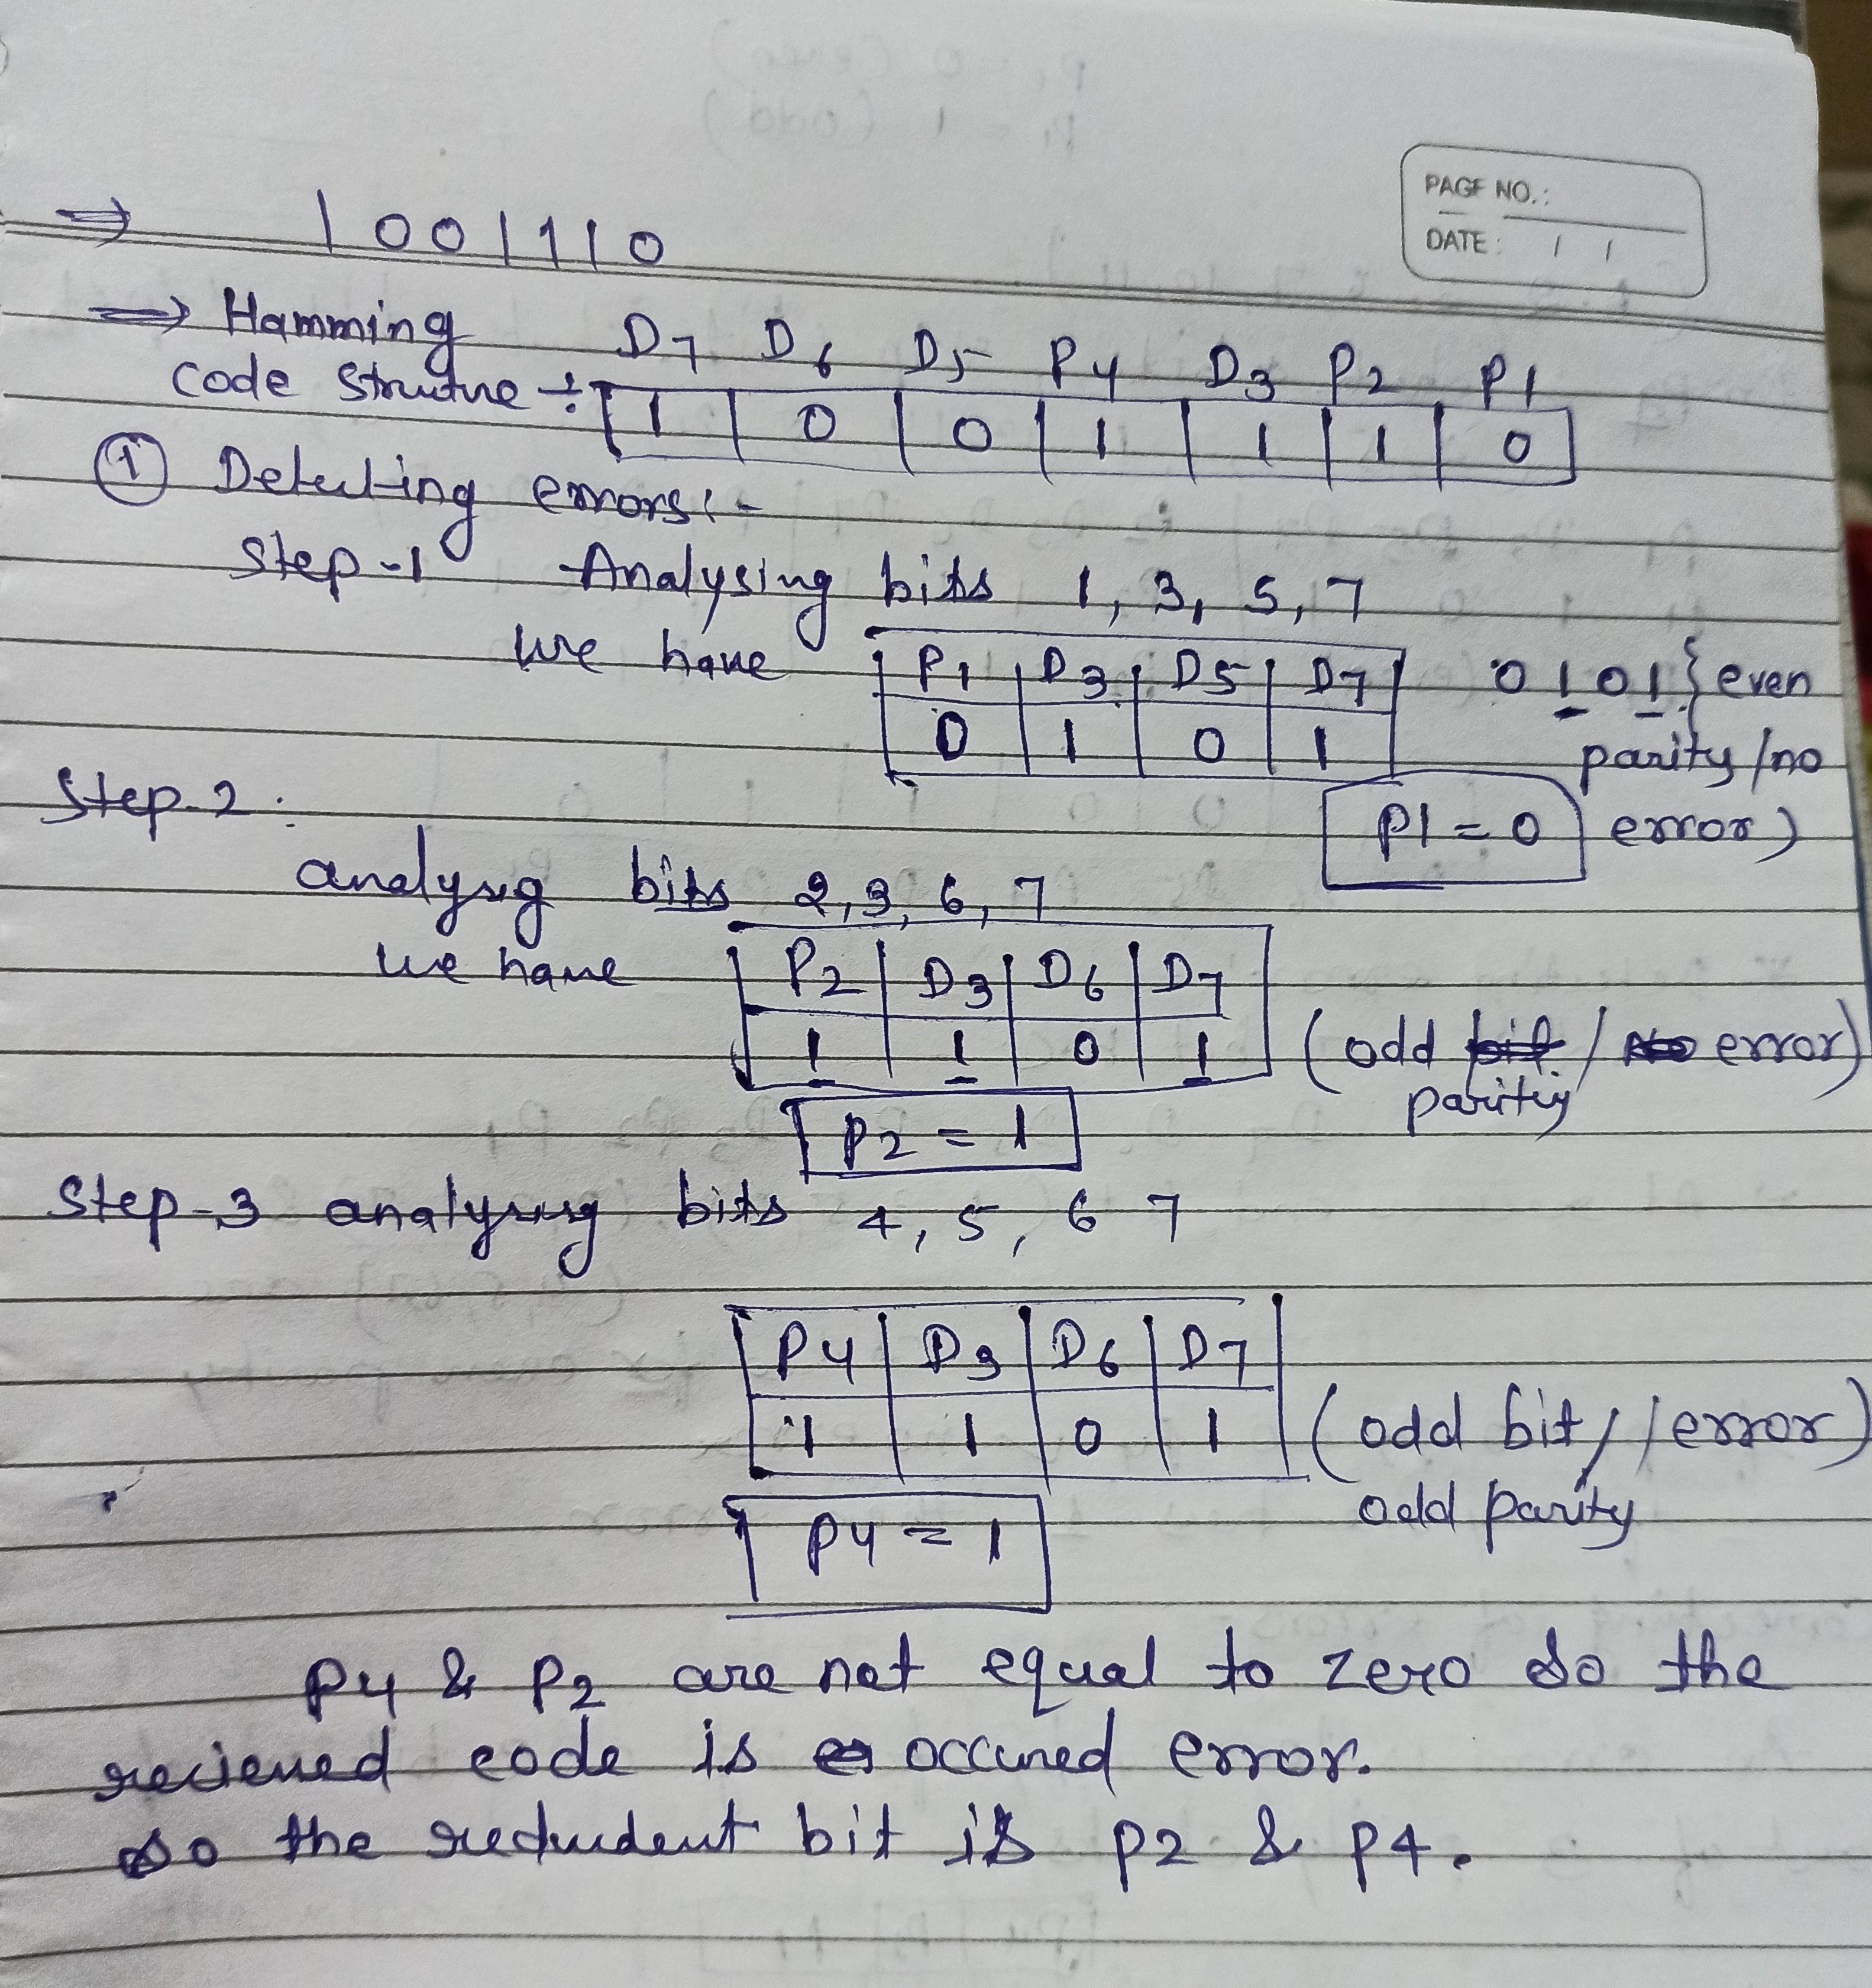 PAGE NO.:
DATE: / /
⇒ 1001110
⇒ Hamming D7 D6 D5 P4 D3 P2 P1
code Structure ÷ 1 0 0 1 1 1 0
① Detecting errors:-
Step-1 Analysing bits 1, 3, 5, 7
we have P1 D3 D5 D7 0101} even
0 1 0 1 parity/no
Step-2: P1=0 error)
analysig bits 2,3,6,7
we have P2 D3 D6 D7
1 1 0 1 (odd bit / no error)
parity
P2 = 1
Step-3 analysing bits 4, 5, 6 7
P4 D3 D6 D7
1 1 0 1 (odd bit / error)
odd parity
P4 = 1
P4 & P2 are not equal to zero so the
recieved code is occured error.
so the redudent bit is P2 & P4.